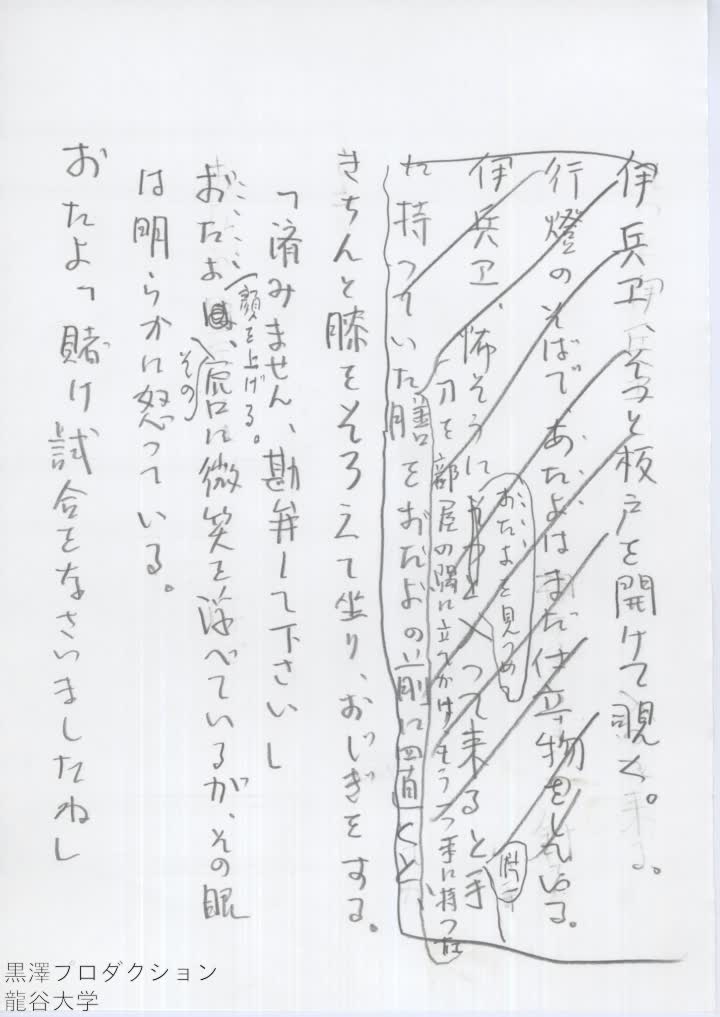 伊兵卫、そっと板戸を開けて覗く。
行燈のそばで、おたよはまだ仕立物をしている。
おたよを見つめる
伊兵卫、怖そうに入って来ると手
片手
刀を部屋の隅に立てかけ、もう一つ手に持った
に持っていた膳をおたよの前に置くと、
きちんと膝をそろえて坐り、おじぎをする。
「済みません、勘弁して下さい」
顔を上げる。
おたよ、唇に微笑を浮べているが、その眼
その
は明らかに怒っている。
おたよ「賭け試合をなさいましたね」
黒澤プロダクション
龍谷大学